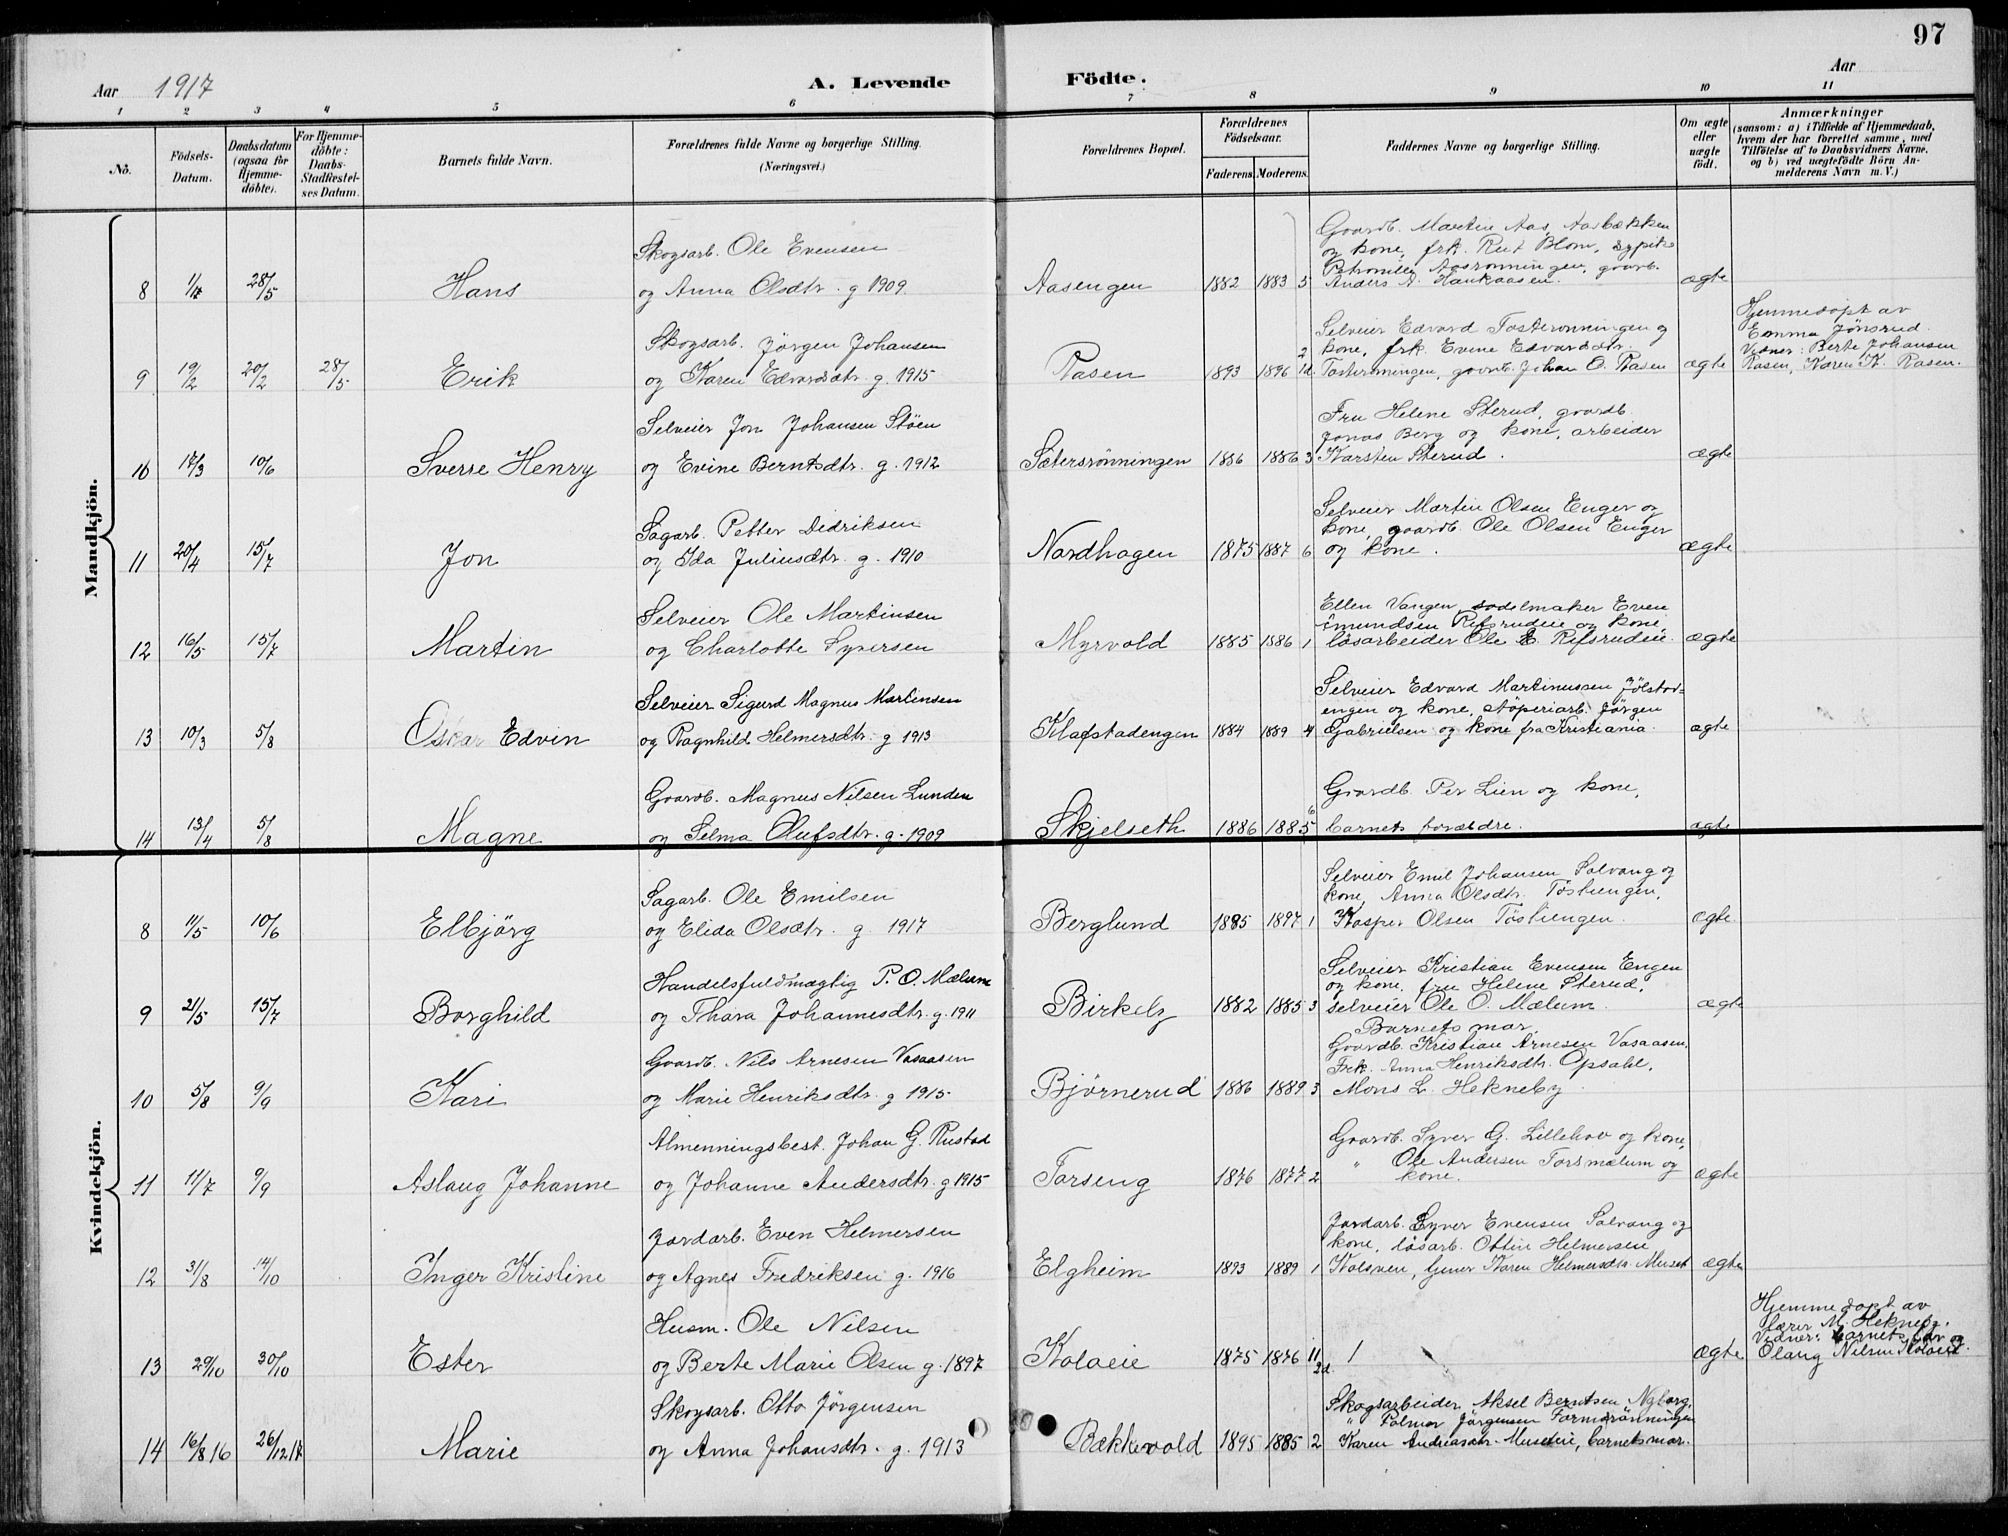 97
Aar 1917
A. Levende Födte.
Aar
1 2 3 4 5 6 7 8 9 10 11
No.
Födsels-Datum.
Daabsdatum (ogsaa for Hjemme-döbte).
For Hjemme-döbte: Daabs-Stadfæstel-ses Datum.
Barnets fulde Navn.
Forældrenes fulde Navne og borgerlige Stilling.
(Næringsvei.)
Forældrenes Bopæl.
Forældrenes Födselsaar.
Faderens. Moderens.
Faddernes Navne og borgerlige Stilling.
Om ægte eller uægte födt.
Anmærkninger
(saasom: a) i Tilfælde af Hjemmedaab,
hvem der har forrettet samme, med
Tilföielse af to Daabsvidners Navne,
og b) ved uægtefödte Börn An-
melderens Navn m. V.)
Mandkjön.
Skogsarb. Ole Evensen
Gaardb. Martin Aas, Aasbækken
og kone, frk. Rut Blom, sypike
Petronille Aasrønningen, gaardb.
8 1/4 28/5 Hans og Anna Olsdtr. g 1909. Aasengen 1882 1883 5 Anders A. Haukaasen. ægte
Hjemmedøpt av
Emma Jønsrud.
Vidner: Berte Johansen
Skogsarb. Jörgen Johansen
Selveier Edvard Tosterønningen og
kone, frk. Evine Edvardsdtr.
9 19/2 20/2 28/5 Erik og Karen Edvardsdtr. g. 1915 Rasen 1893 1896 2 1d. Tosterønningen, gaardb. Johan O. Rasen ægte Rasen, Karen K. Rasen.
Selveier Jon Johansen Støen
Fru Helene Sterud, gaardb.
Jonas Berg og kone, arbeider
10 17/3 10/6 Sverre Henry og Evine Berntsdtr. g. 1912 Sætersrønningen 1886 1886 3 Karsten Sterud. ægte
Sagarb. Petter Didriksen
Selveier Martin Olsen Enger og
kone, gaardb. Ole Olsen Enger
11 20/4 15/7 Jon og Ida Juliusdtr. g. 1910 Nordhagen 1875 1887 6 og kone. ægte
Selveier Ole Martinsen
Ellen Vangen, sadelmaker Even
Amundsen Rifsrudeie og kone,
12 16/5 15/7 Martin og Charlotte Syversen Myrvold 1885 1886 1 løsarbeider Ole E. Rifsrudeie. ægte
Selveier Sigurd Magnus Martinsen
Selveier Edvard Martinussen Jölstad-
engen og kone, støperiarb. Jørgen
13 10/3 5/8 Oskar Edvin og Ragnhild Helmersdtr. g 1913 Klafstadengen 1884 1889 4 Gabrielsen og kone fra Kristiania. ægte
Gaardb. Magnus Nilsen Lunden
Gaardb. Per Lien og kone,
14 13/4 5/8 Magne og Selma Olufsdtr. g. 1909 Skjelseth 1886 1885 6 barnets forældre. ægte
Kvindekjön.
Sagarb. Ole Emilsen
Selveier Emil Johansen Solvang og
kone, Anna Olsdtr. Tøstiengen,
8 11/5 10/6 Elbjörg og Elida Olsdtr. g. 1917 Berglund 1885 1897 1 Kasper Olsen Tøstiengen. ægte
Handelsfuldmægtig P. O. Mælum
Selveier Kristian Evensen Engen
og kone, fru Helene Sterud,
9 21/5 15/7 Borghild og Thora Johannesdtr. g. 1911 Birkely 1882 1885 3 selveier Ole O. Mælum. ægte
Barnets mor,
Gaardb. Nils Arnesen Vasaasen
Gaardb. Kristian Arnesen Vasaasen,
Frk. Anna Henriksdtr. Opsahl,
10 5/8 9/9 Kari og Marie Henriksdtr. g 1915. Björnerud 1886 1889 3 Mons L. Hekneby.
Almenningsbest. Johan G. Rustad
Gaardb. Syver G. Lillehov og kone,
" Ole Andersen Torsmælum og
11 11/7 9/9 Aslaug Johanne og Johanne Andersdtr. g 1915 Torseng 1876 1877 2 kone. ægte
Jordarb. Even Helmersen
Jordarb. Syver Evensen Solvang og
kone, løsarb. Ottin Helmersen
12 31/8 14/10 Inger Kristine og Agnes Fredriksen g. 1916 Elgheim 1893 1889 1 Kolsveen, tjener Karen Helmersdtr. Muset ægte
Hjemmedøpt av
lærer M. Hekneby.
Vidner: barnets far og
Husm. Ole Nilsen
13 29/10 30/10 Ester og Berte Marie Olsen g. 1897 Koloeie 1875 1876 11 2d. / ægte Olaug Nilsen Koloeie.
Skogsarb. Otto Jørgensen
Skogsarbeider Aksel Berntsen Nyborg,
" Palmar Jørgensen
14 16/8 16 26/12 17 Marie og Anna Johansdtr. g. 1913 Bækkevold 1895 1885 2 Karen Andreasdtr. Museteie, barnets mor.